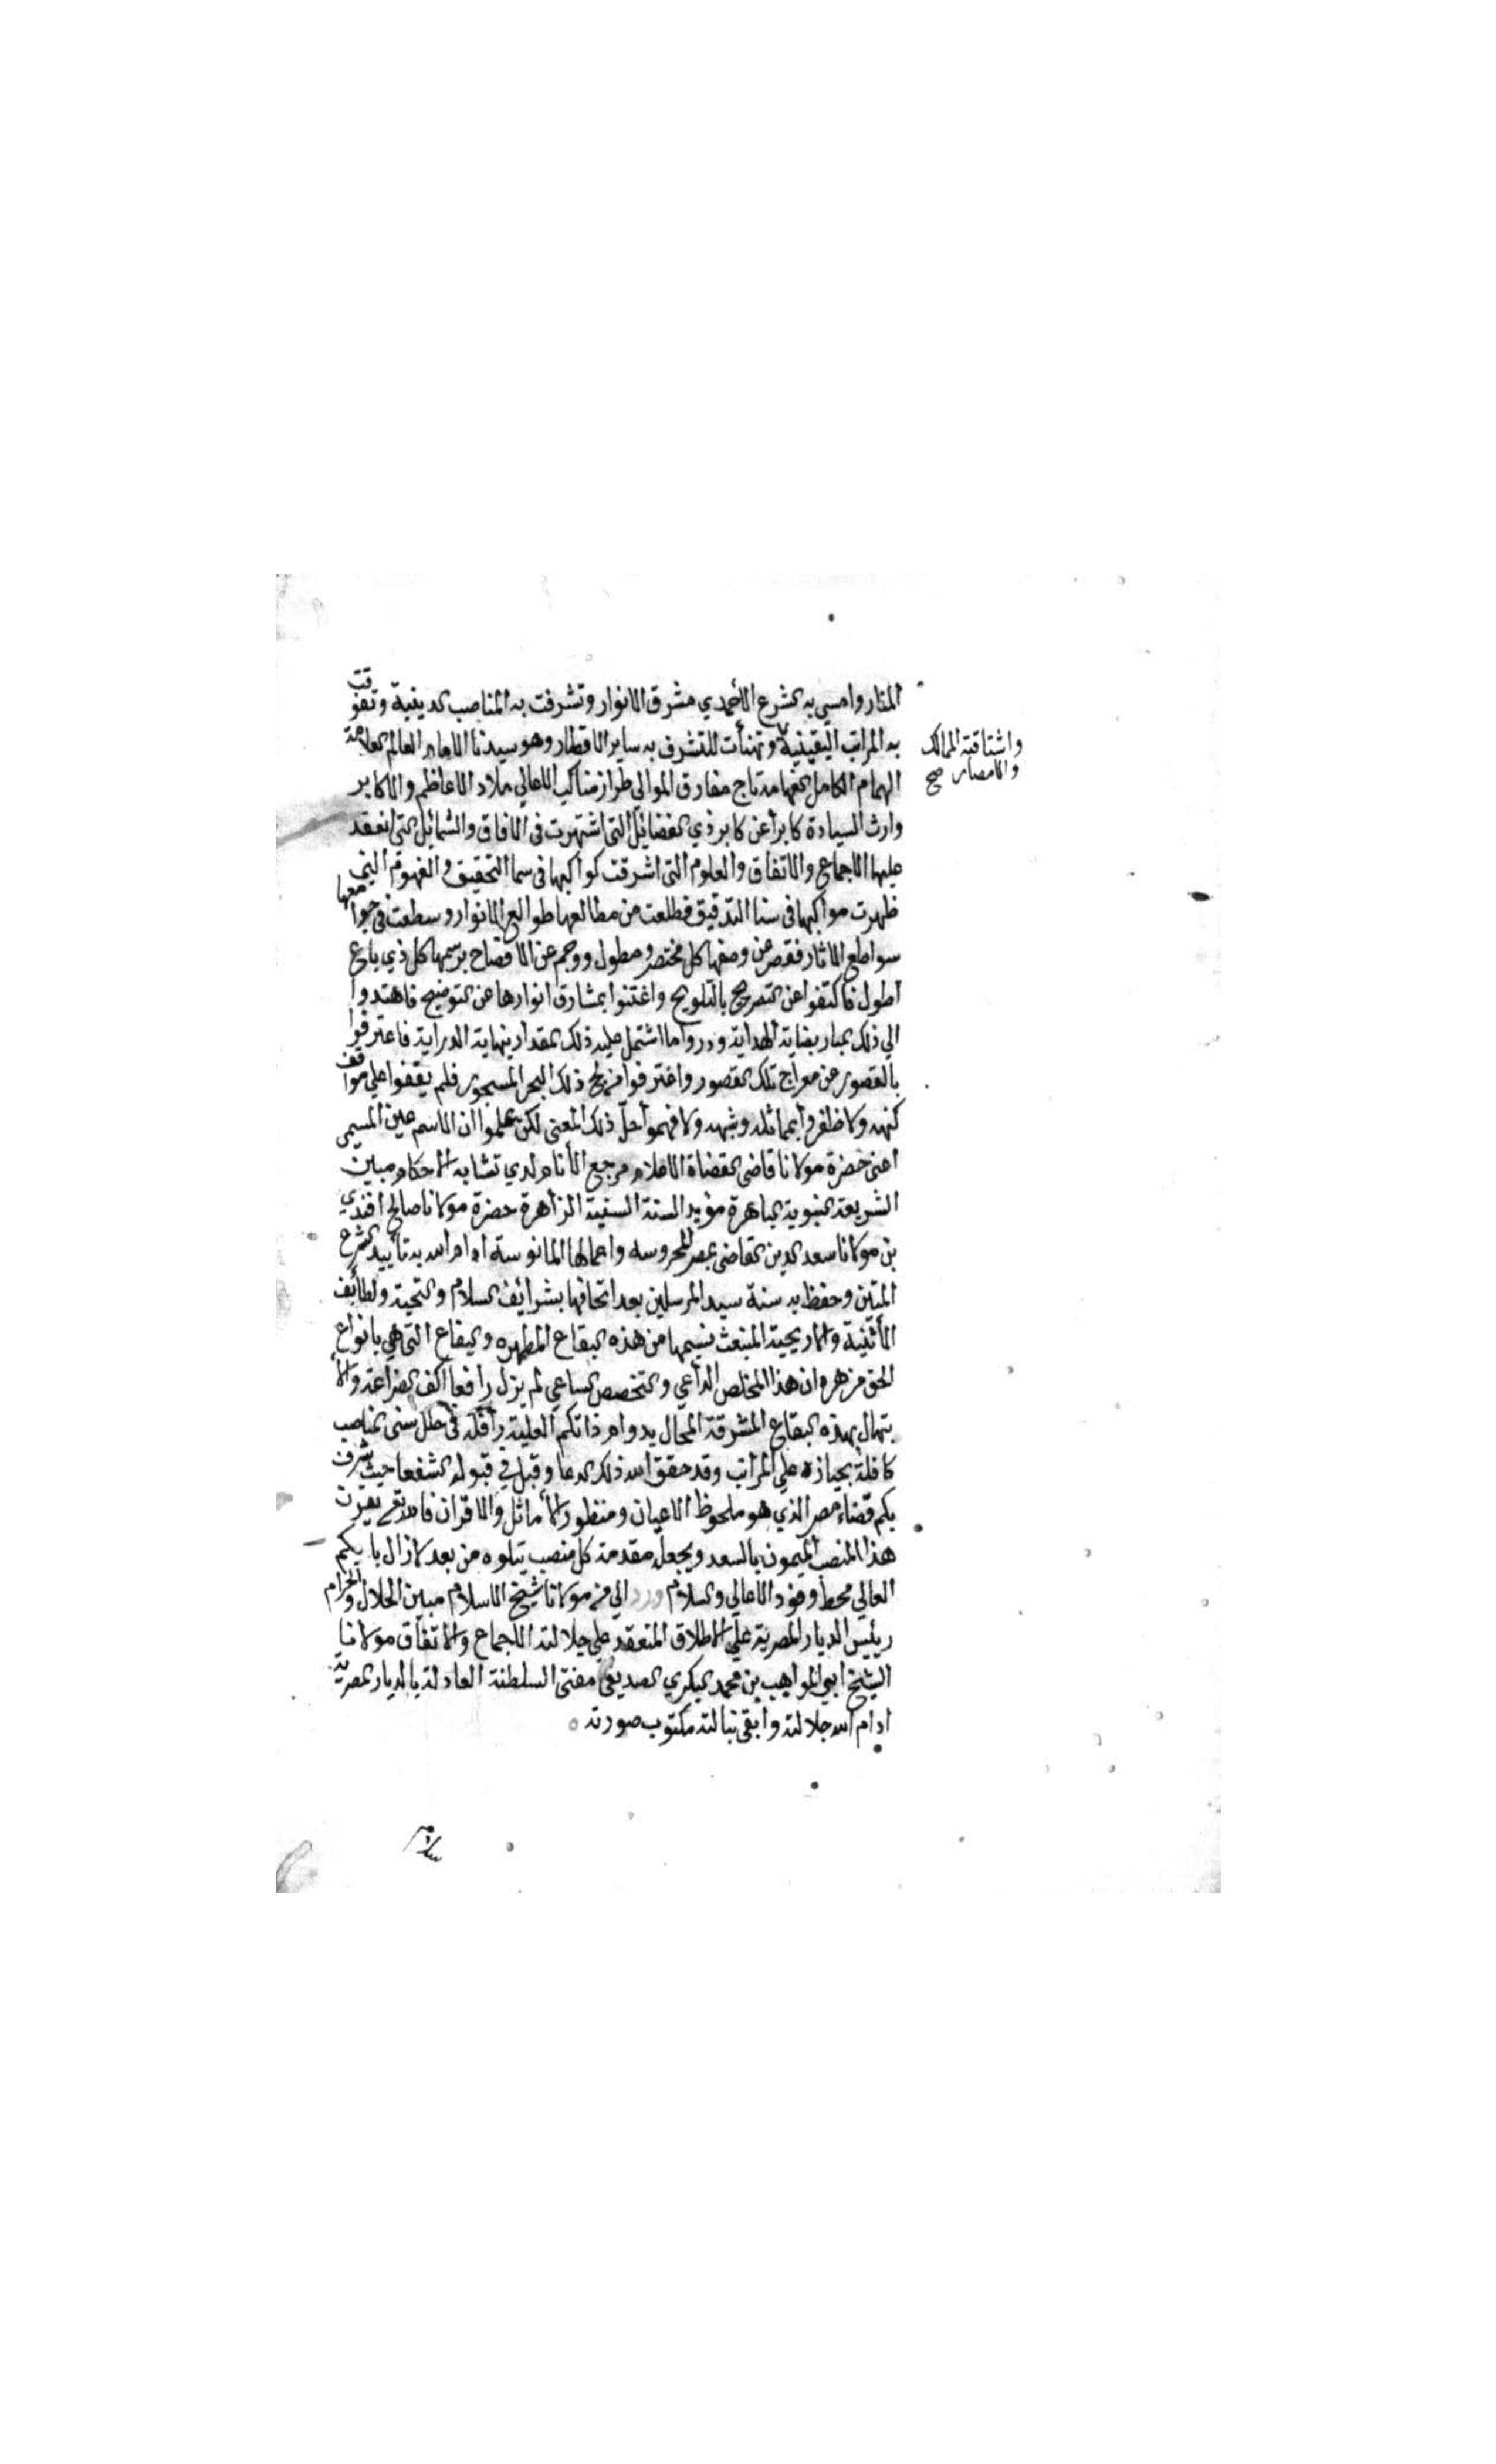 المنار وامسى به الشرع الأحمدي مشرق الانوار وتشرفت به المناصب الدينية وتفوقت
به المراتب اليقينية وتهنأت للتشرف به ساير الاقطار وهو سيدنا الامام العالم العلامة
واشتاقته الممالك
والامصار صح
الهمام الكامل الفهامة تاج مفارق الموالى طراز مناكب الاعالي ملاد الاعاظم والاكابر
وارث السيادة كابرا عن كابر ذي الفضائل التى اشتهرت فى الافاق والشمائل التى انعقد
عليها الاجماع والاتفاق والعلوم التى اشرقت كواكبها فى سما التحقيق والفهوم التي
ظهرت مواكبها فى سنا التدقيق فطلعت من مطالعها طوالع الانوار وسطعت في جوامعها
سواطع الاثار فقصر عن وصفها كل مختصر ومطول ووجم عن الافصاح برسمها كل ذي باع
اطول فاكتفوا عن التصريح بالتلويح واغتنوا بمشارق انوارها عن التوضيح فاهتدوا
الي ذلك بعناية الهداية ودروا ما اشتمل عليه ذلك بمقدار نهاية الدراية فاعترفوا
بالقصور عن معراج تلك القصور واغترفوا من لج ذلك البحر المسجور فلم يقفوا على مواقف
كنهه ولا ظفروا بمماثله وشبهه ولا فهموا حل ذلك المعنى لكن علموا ان الاسم عين المسمى
اعنى حضرة مولانا قاضى القضاة الاعلام مرجع الأنام لدي تشابه الاحكام مبين
الشريعة النبوية الباهرة مؤيد السنة السنية الزاهرة حضرة مولانا صالح افندي
بن مولانا سعد الدين القاضى بمصر المحروسه واعمالها المانوسة ادام الله به تأييد الشرع
المتين وحفظ به سنة سيد المرسلين بعد اتحافها بشرائف السلام والتحية ولطائف
الأثنية والاريحية المنبعث نسيمها من هذه البقاع المطهره والبقاع التى هي بانواع
الحق مزهره وان هذا المخلص الداعي والتخصص الساعي لم يزل رافعا اكف الضراعة والأ
بتهال بهذه البقاع المشرقة المحال بدوام ذاتكم العلية رافلة في حلل سنى المناصب
كافلة بحيازة علي المراتب وقد حقق الله ذلك الدعا وقبل في قبوله الشفعا حيث شرف
بكم قضاء مصر الذي هو ملحوظ الاعيان ومنظور الأماثل والاقران فالله تعالى يقرن
هذا المنصب الميمون بالسعد ويجعله مقدمة كل منصب يتلوه من بعد لازال بابكم
العالي محط وفود الاعالي والسلام ورد الي من مولانا شيخ الاسلام مبين الحلال والحرام
رئيس الديار المصرية على الاطلاق المنعقد علي جلالته الاجماع والاتفاق مولانا
الشيخ ابو المواهب بن محمد البكري الصديقى مفتى السلطنة العادلة بالديار المصرية
ادام الله جلالته وابقى نبالته مكتوب صورته ○